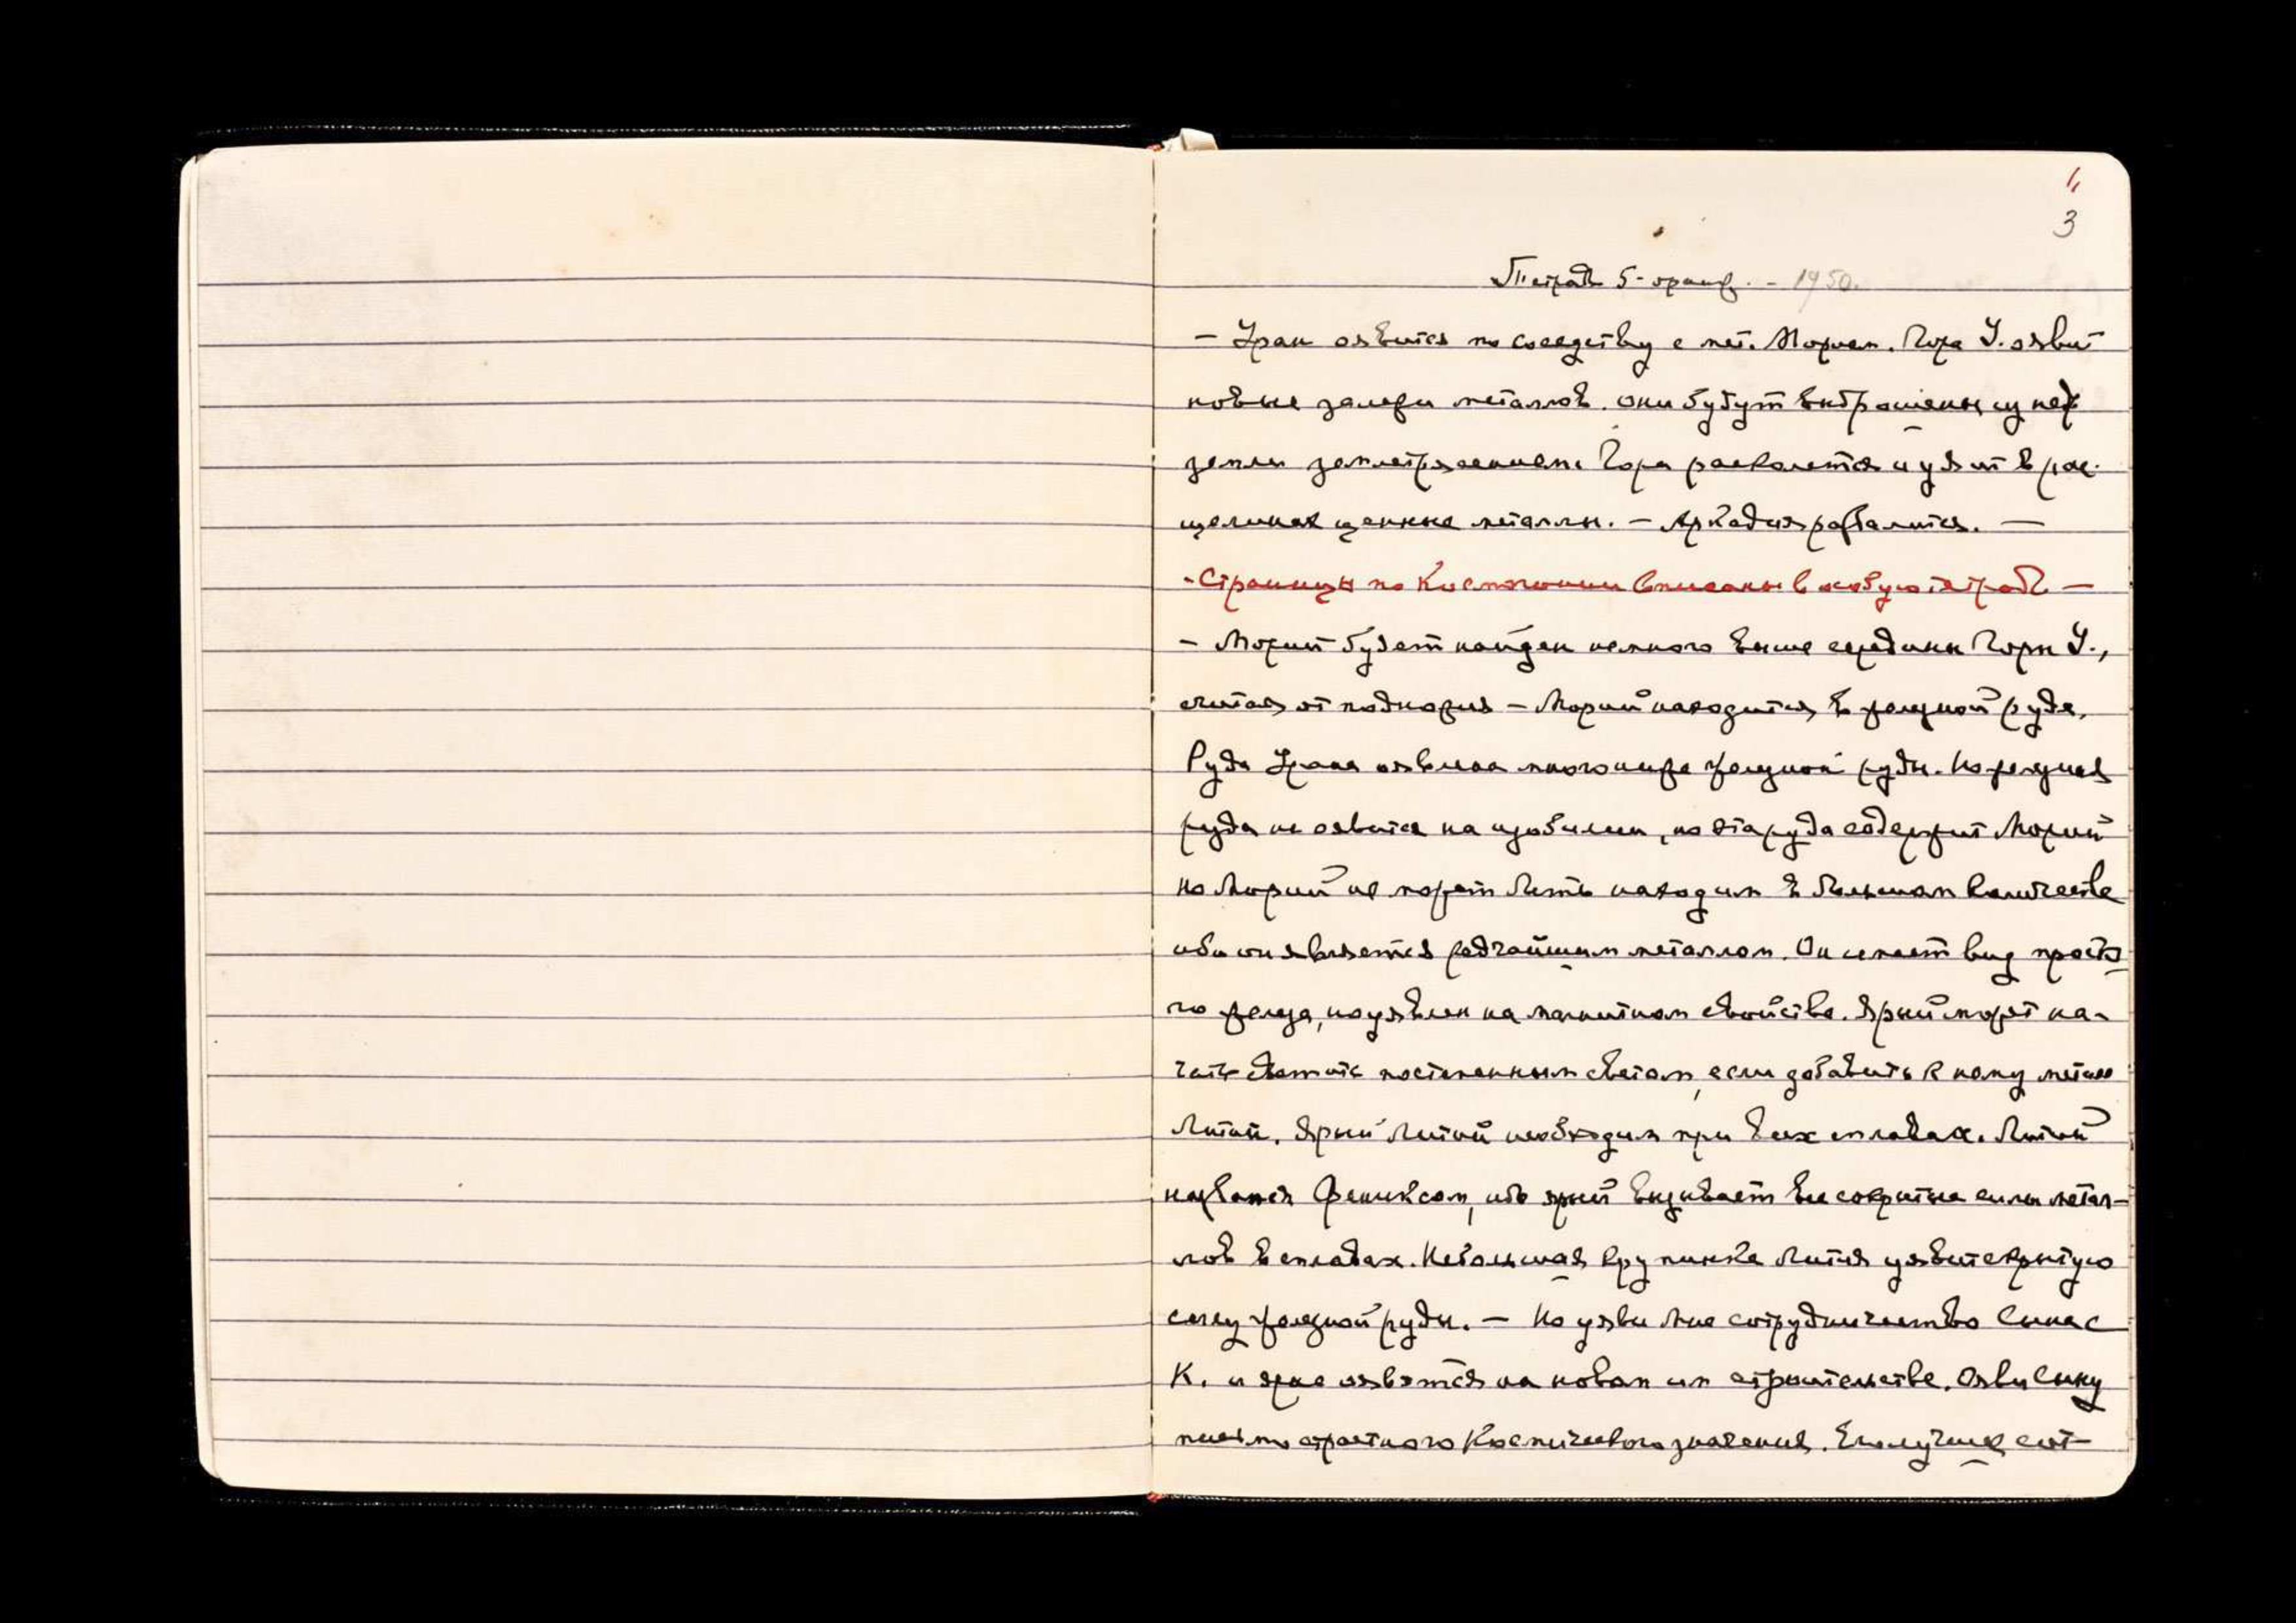 1,
3
Тетрадь 5- оранж. - 1950.
- Уран оявится по соседству с мет. Морием. Гора У. оявит
новые залежи металлов. они будут выброшены из недр
земли землетрясением Гора расколется и уявит в рас-
щелинах ценные металлы. - Аркадия развалится. -
- Страницы по Космогонии вписаны в особую тетрадь -
- Морий будет найден немного выше середины Горы У.,
считая от подножия - Морий находится в железной руде,
Руда Урана оявлена много ниже железной руды. Но железная
руда не оявится на изобилии, но эта руда содержит Морий
Но Морий не может быть находим в большом количестве
ибо он является редчайшим металлом. Он имеет вид просто-
го железа, но уявлен на магнитном свойстве. Ярый может на-
чать светить постепенным светом, если добавить к нему металл
Литий. Ярый Литий необходим при всех сплавах. Литий
назвался Фениксом, ибо ярый вызывает все сокрытые силы метал-
лов в сплавах. Небольшая крупинка Лития уявит скрытую
силу железной руды. - Но уяви Мне сотрудничество сына с
К. и ярые оявятся на новом им строительстве. Ояви сыну
письмо страстного Космического значения.